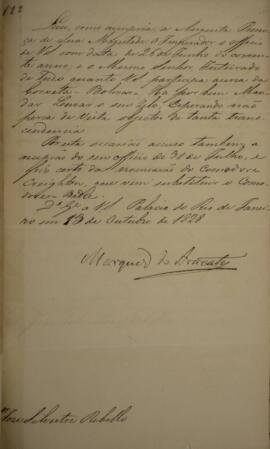 122
Levei, como cumpria, á Augusta Presen-
ça de Sua Magestade O Imperador o officio
de VS. com data de 26 de Junho do corrente
anno, e o Mesmo Senhor, Inteirado
de tudo quanto VS. participa acerca da
Corveta - Bolivar - Ha por bem Man-
dar Louvar o seu zelo, Esperando não
perca de vista objectos de tanta trans-
cendencia
Nesta occasião accuso tambem a
recepção do seu officio de 31 de Julho, e
fico certo da nomeação do Comodore
Creighton, que vem substituir o Como-
dore Bidle.
D.s G.e a VS. Palacio do Rio de Janei-
ro em 13 de Outubro de 1828
Marquez do Aracaty
José Silvestre Rebello